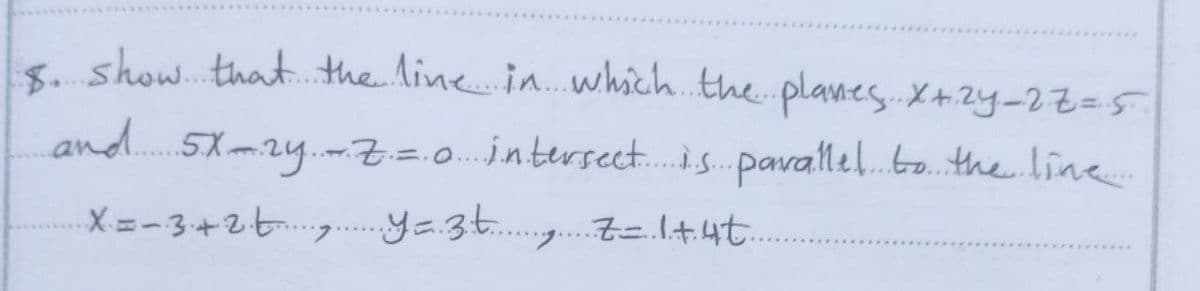 8. show that the line in which the planes x+2y-2z=5
and 5x-2y-z=0 intersect is parallel to the line
x=-3+2t, y=3t, z=1+4t